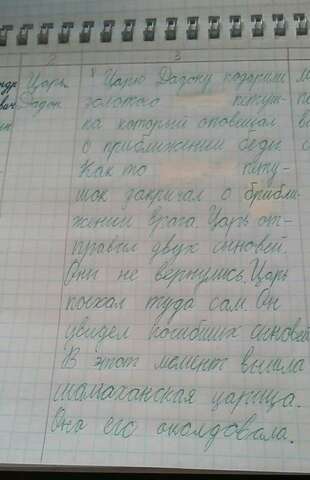 2
3
Царь
Дадон
Царю Дадону подарили
золотого петуш-
ка который оповещал
о приближении беды
Как то пету-
шок закричал о прибли-
жении врага. Царь от-
правил двух сыновей.
Они не вернулись. Царь
поехал туда сам. Он
увидел погибших сыновей
В этот момент вышла
шамаханская царица.
Она его околдовала.